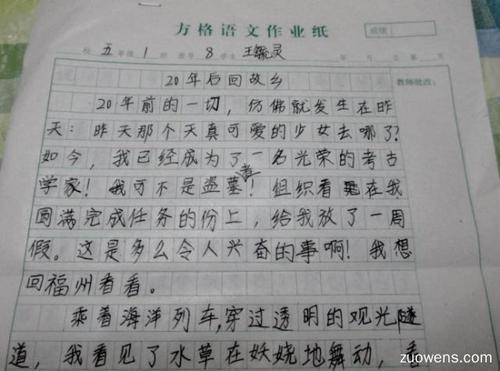 方格语文作业纸
成绩
校 五 年级 1 班 座号 8 学生 王毓灵 年 月 日第 页
20年后回故乡
教师批改:
20年前的一切，仿佛就发生在昨
天：昨天那个天真可爱的少女去哪了？
如今，我已经成为了一名光荣的考古
学家！我可不是盗墓者！组织看在我
圆满完成任务的份上，给我放了一周
假。这是多么令人兴奋的事啊！我想
回福州看看。
乘着海洋列车，穿过透明的观光隧
道，我看见了水草在妖娆地舞动，看
zuowens.com